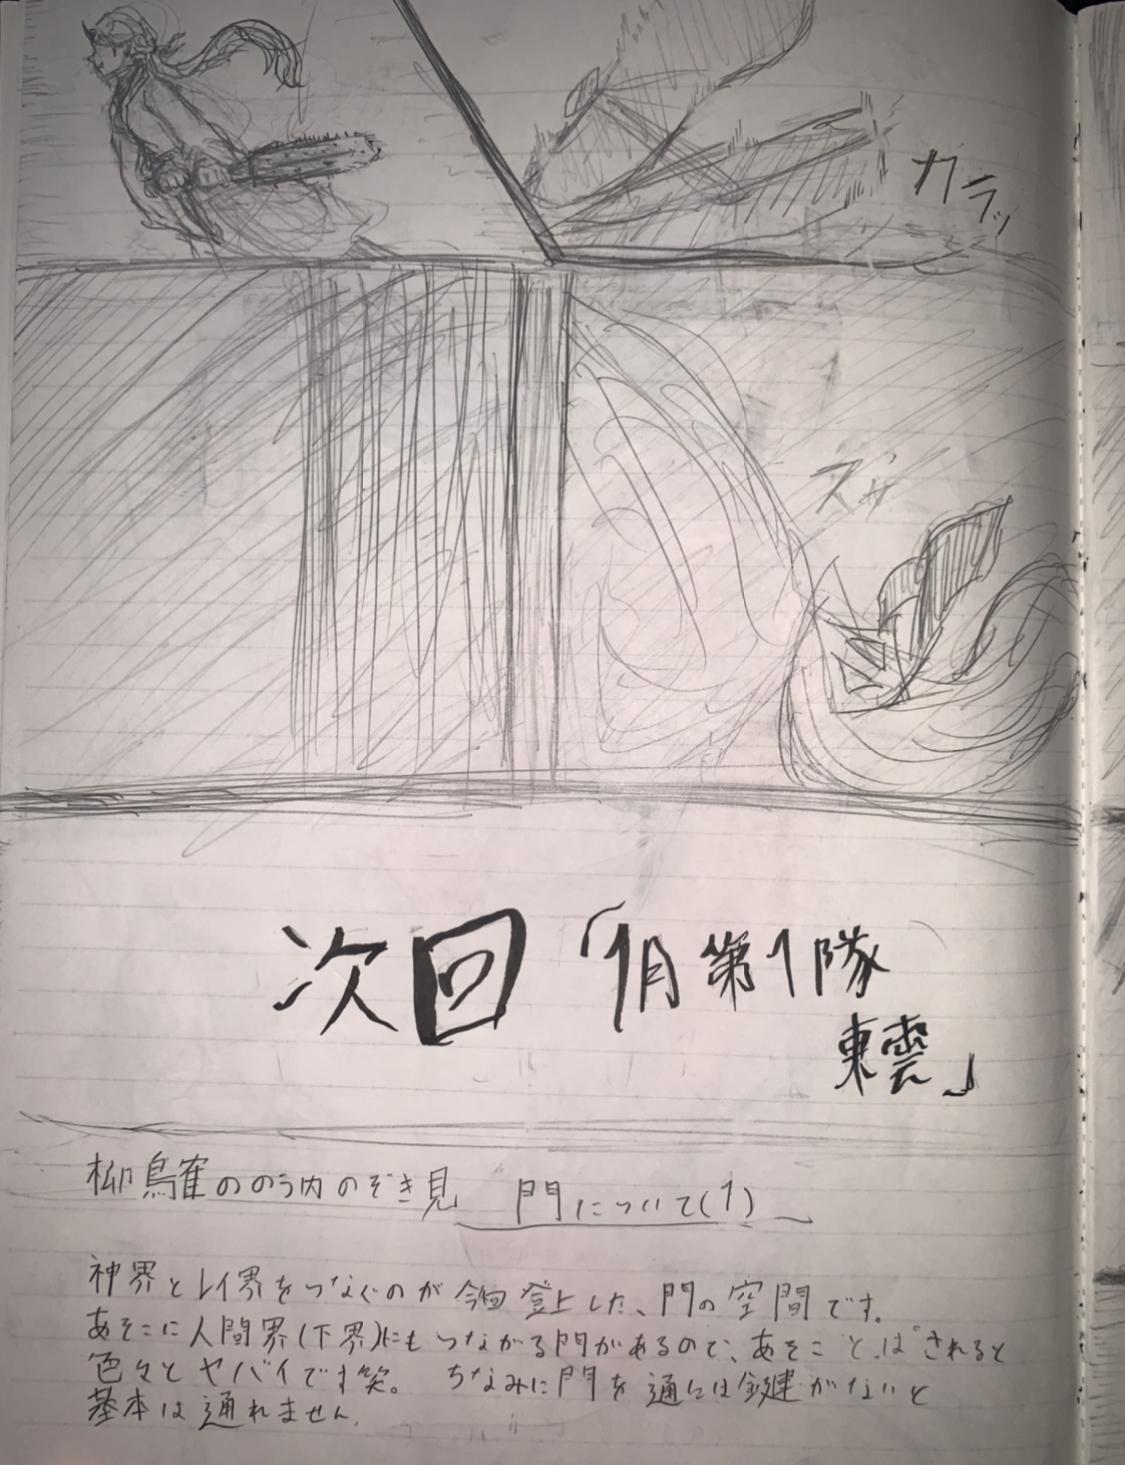 カラッ
ズザ
次回「1月第1隊
東雲」
柳鳥雀ののう内のぞき見 門について(1)
神界とレイ界をつなぐのが今回登上した、門の空間です。
あそこに人間界(下界)にもつながる門があるので、あそことっぱされると
色々とヤバイです笑。ちなみに門を通には鍵がないと
基本は通れません。